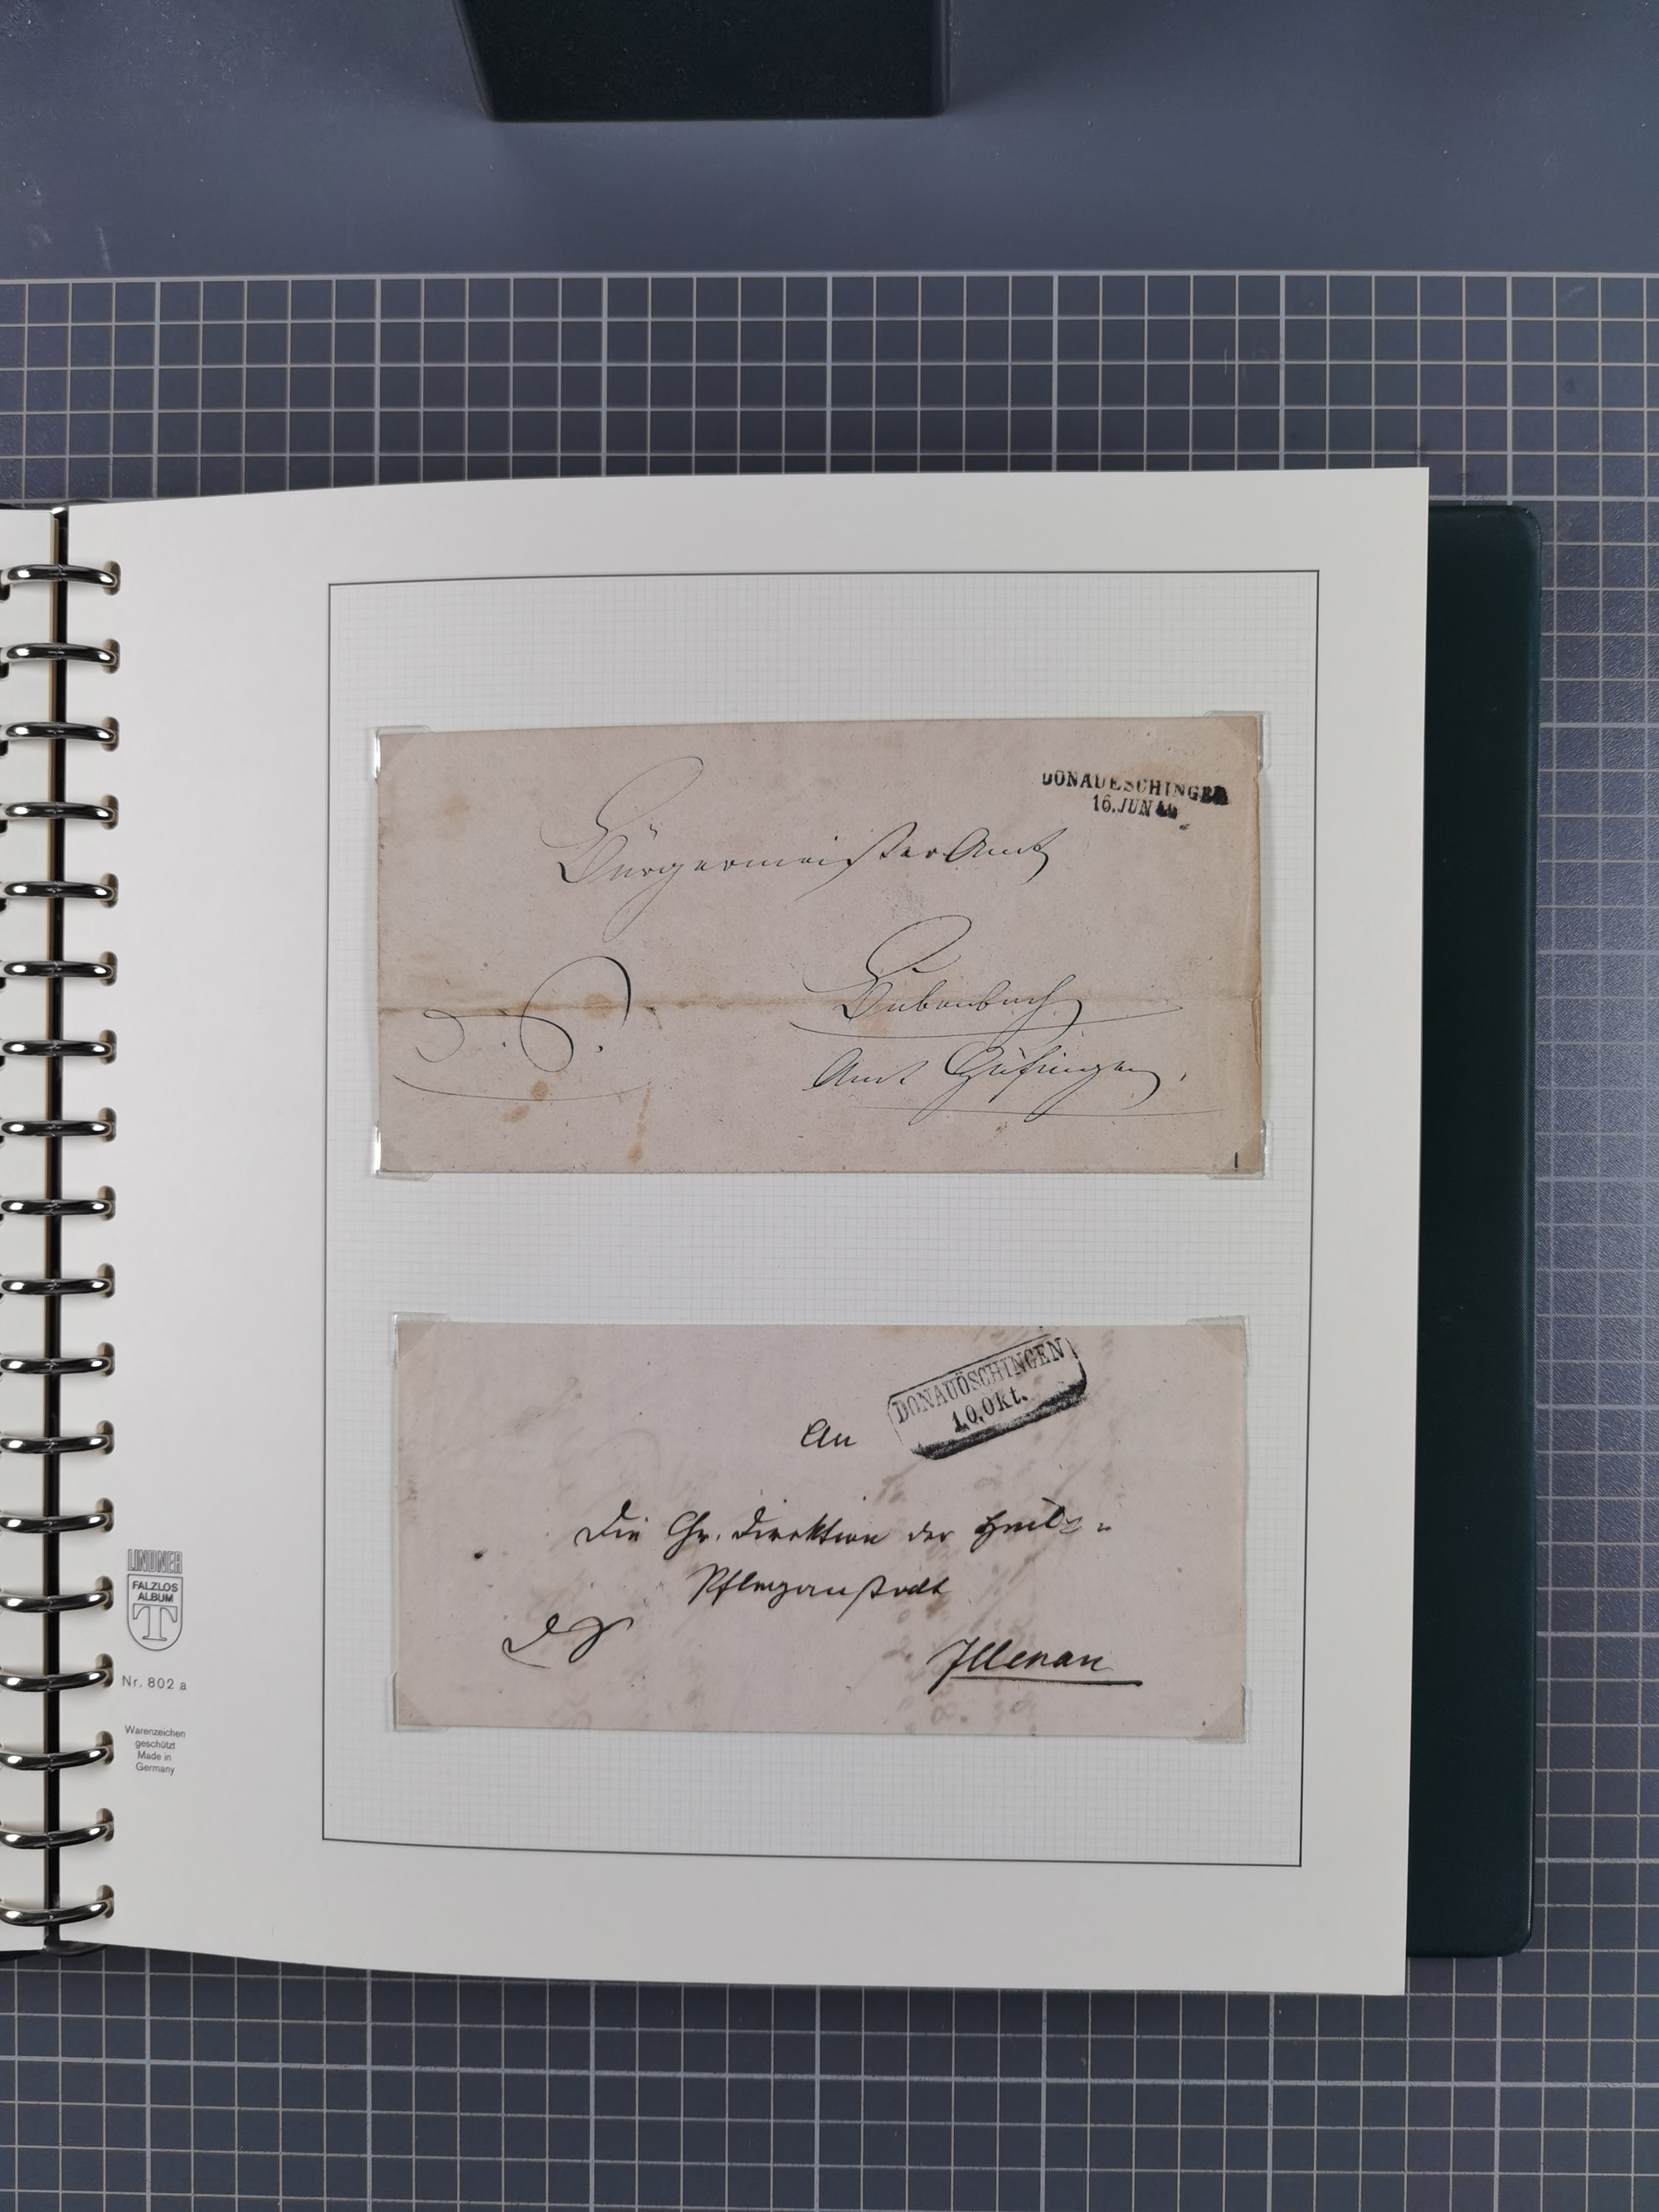 DONAUESCHINGEN
16. JUN
Bürgermeister Amt
Bubenbach
Amt Hüfingen.
DONAUÖSCHINGEN
10. Okt.
An
Die Gr. Direktion der Heil- =
Pflegeanstalt
Illenau
LINDNER
FALZLOS
ALBUM
T
Nr. 802 a
Warenzeichen
geschützt
Made in
Germany